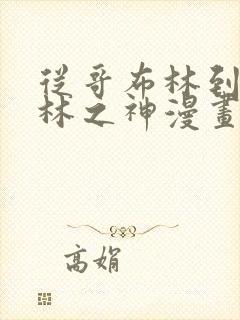 從哥布林到
林之神漫畫
高娟